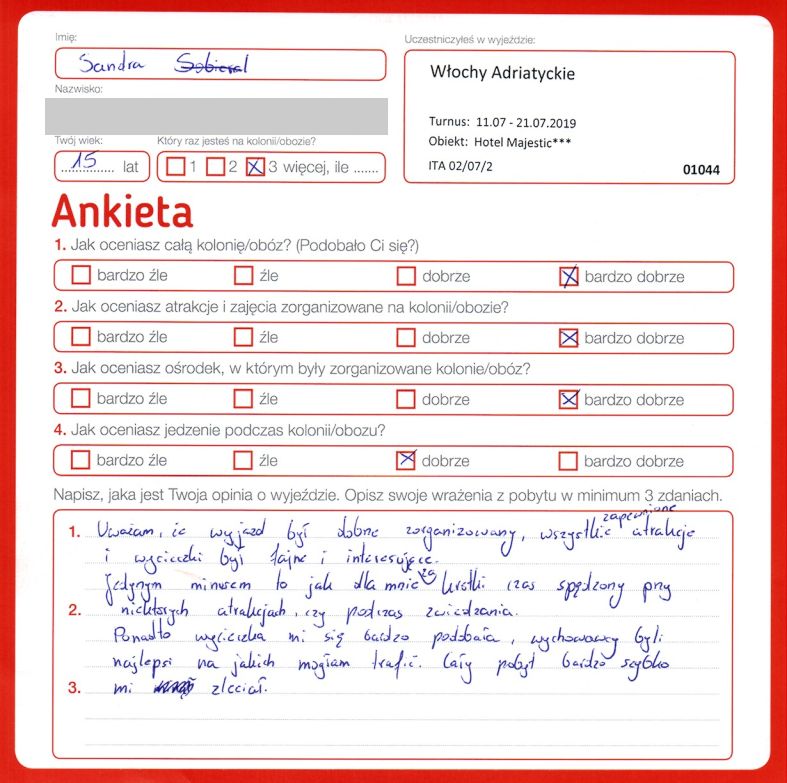 Imię:
Sandra
Nazwisko:
Twój wiek:
15 lat
Który raz jesteś na kolonii/obozie?
1 2 3 więcej, ile .......
Uczestniczyłeś w wyjeździe:
Włochy Adriatyckie
Turnus: 11.07 - 21.07.2019
Obiekt: Hotel Majestic***
ITA 02/07/2 01044
Ankieta
1. Jak oceniasz całą kolonię/obóz? (Podobało Ci się?)
bardzo źle źle dobrze bardzo dobrze
2. Jak oceniasz atrakcje i zajęcia zorganizowane na kolonii/obozie?
bardzo źle źle dobrze bardzo dobrze
3. Jak oceniasz ośrodek, w którym były zorganizowane kolonie/obóz?
bardzo źle źle dobrze bardzo dobrze
4. Jak oceniasz jedzenie podczas kolonii/obozu?
bardzo źle źle dobrze bardzo dobrze
Napisz, jaka jest Twoja opinia o wyjeździe. Opisz swoje wrażenia z pobytu w minimum 3 zdaniach.
1. Uważam, że wyjazd był dobrze zorganizowany, wszystkie zapewnione atrakcje
i wycieczki były fajne i interesujące.
Jedynym minusem to jak dla mnie za krótki czas spędzony przy
2. niektórych atrakcjach, czy podczas zwiedzania.
Ponadto wycieczka mi się bardzo podobała, wychowawcy byli
najlepsi na jakich mogłam trafić. Cały pobyt bardzo szybko
3. mi zleciał.